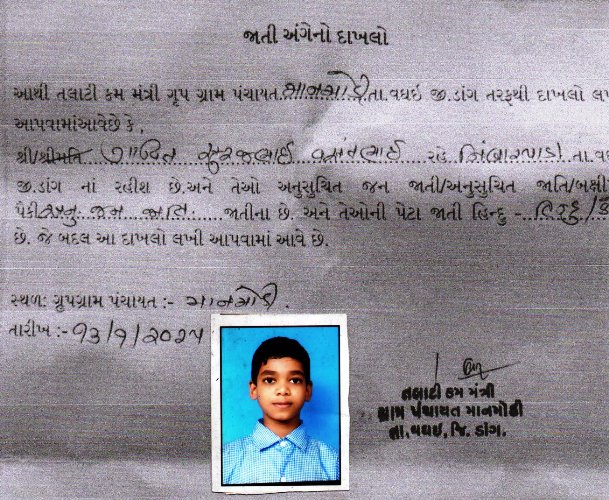 જાતી અંગેનો દાખલો
આથી તલાટી કમ મંત્રી ગૃપ ગ્રામ પંચાયત માનમોડી તા.વઘઇ જી.ડાંગ તરફથી દાખલો
આપવામાંઆવેછે કે,
શ્રી/શ્રીમતિ ગાવિત સુરજભાઈ વસંતભાઈ રહે. તા.
જી.ડાંગ નાં રહીશ છે.અને તેઓ અનુસુચિત જન જાતી/અનુસુચિત જાતિ/
પૈકી અનુ. જન જાતિ જાતીના છે. અને તેઓની પેટા જાતી હિન્દુ -
છે. જે બદલ આ દાખલો લખી આપવામાં આવે છે.
સ્થળ: ગૃપગ્રામ પંચાયત :- માનમોડી.
તારીખ :- ૧૩/૧/૨૦૨૫
તલાટી કમ મંત્રી
ગ્રામ પંચાયત માનમોડી
તા.વઘઇ, જિ. ડાંગ.